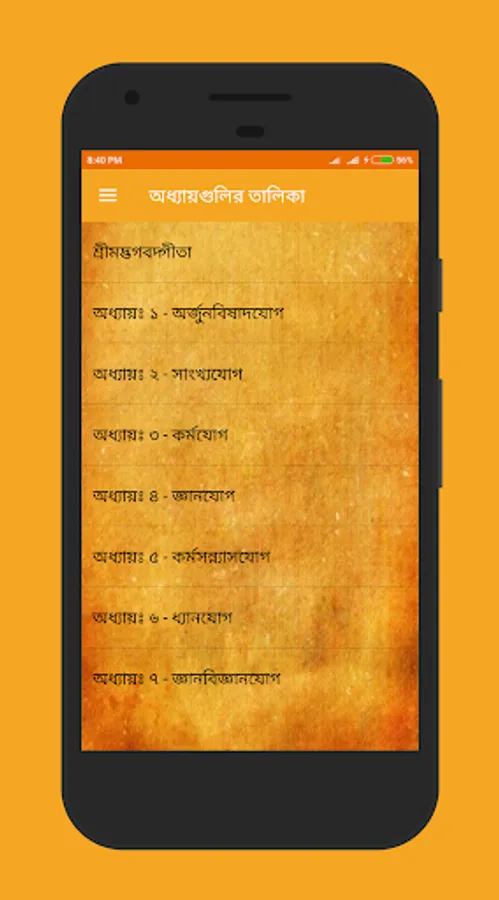 8:40 PM
86%
অধ্যায়গুলির তালিকা
শ্রীমদ্ভগবদ্গীতা
অধ্যায়ঃ ১ - অর্জুনবিষাদযোগ
অধ্যায়ঃ ২ - সাংখ্যযোগ
অধ্যায়ঃ ৩ - কর্মযোগ
অধ্যায়ঃ ৪ - জ্ঞানযোগ
অধ্যায়ঃ ৫ - কর্মসন্ন্যাসযোগ
অধ্যায়ঃ ৬ - ধ্যানযোগ
অধ্যায়ঃ ৭ - জ্ঞানবিজ্ঞানযোগ